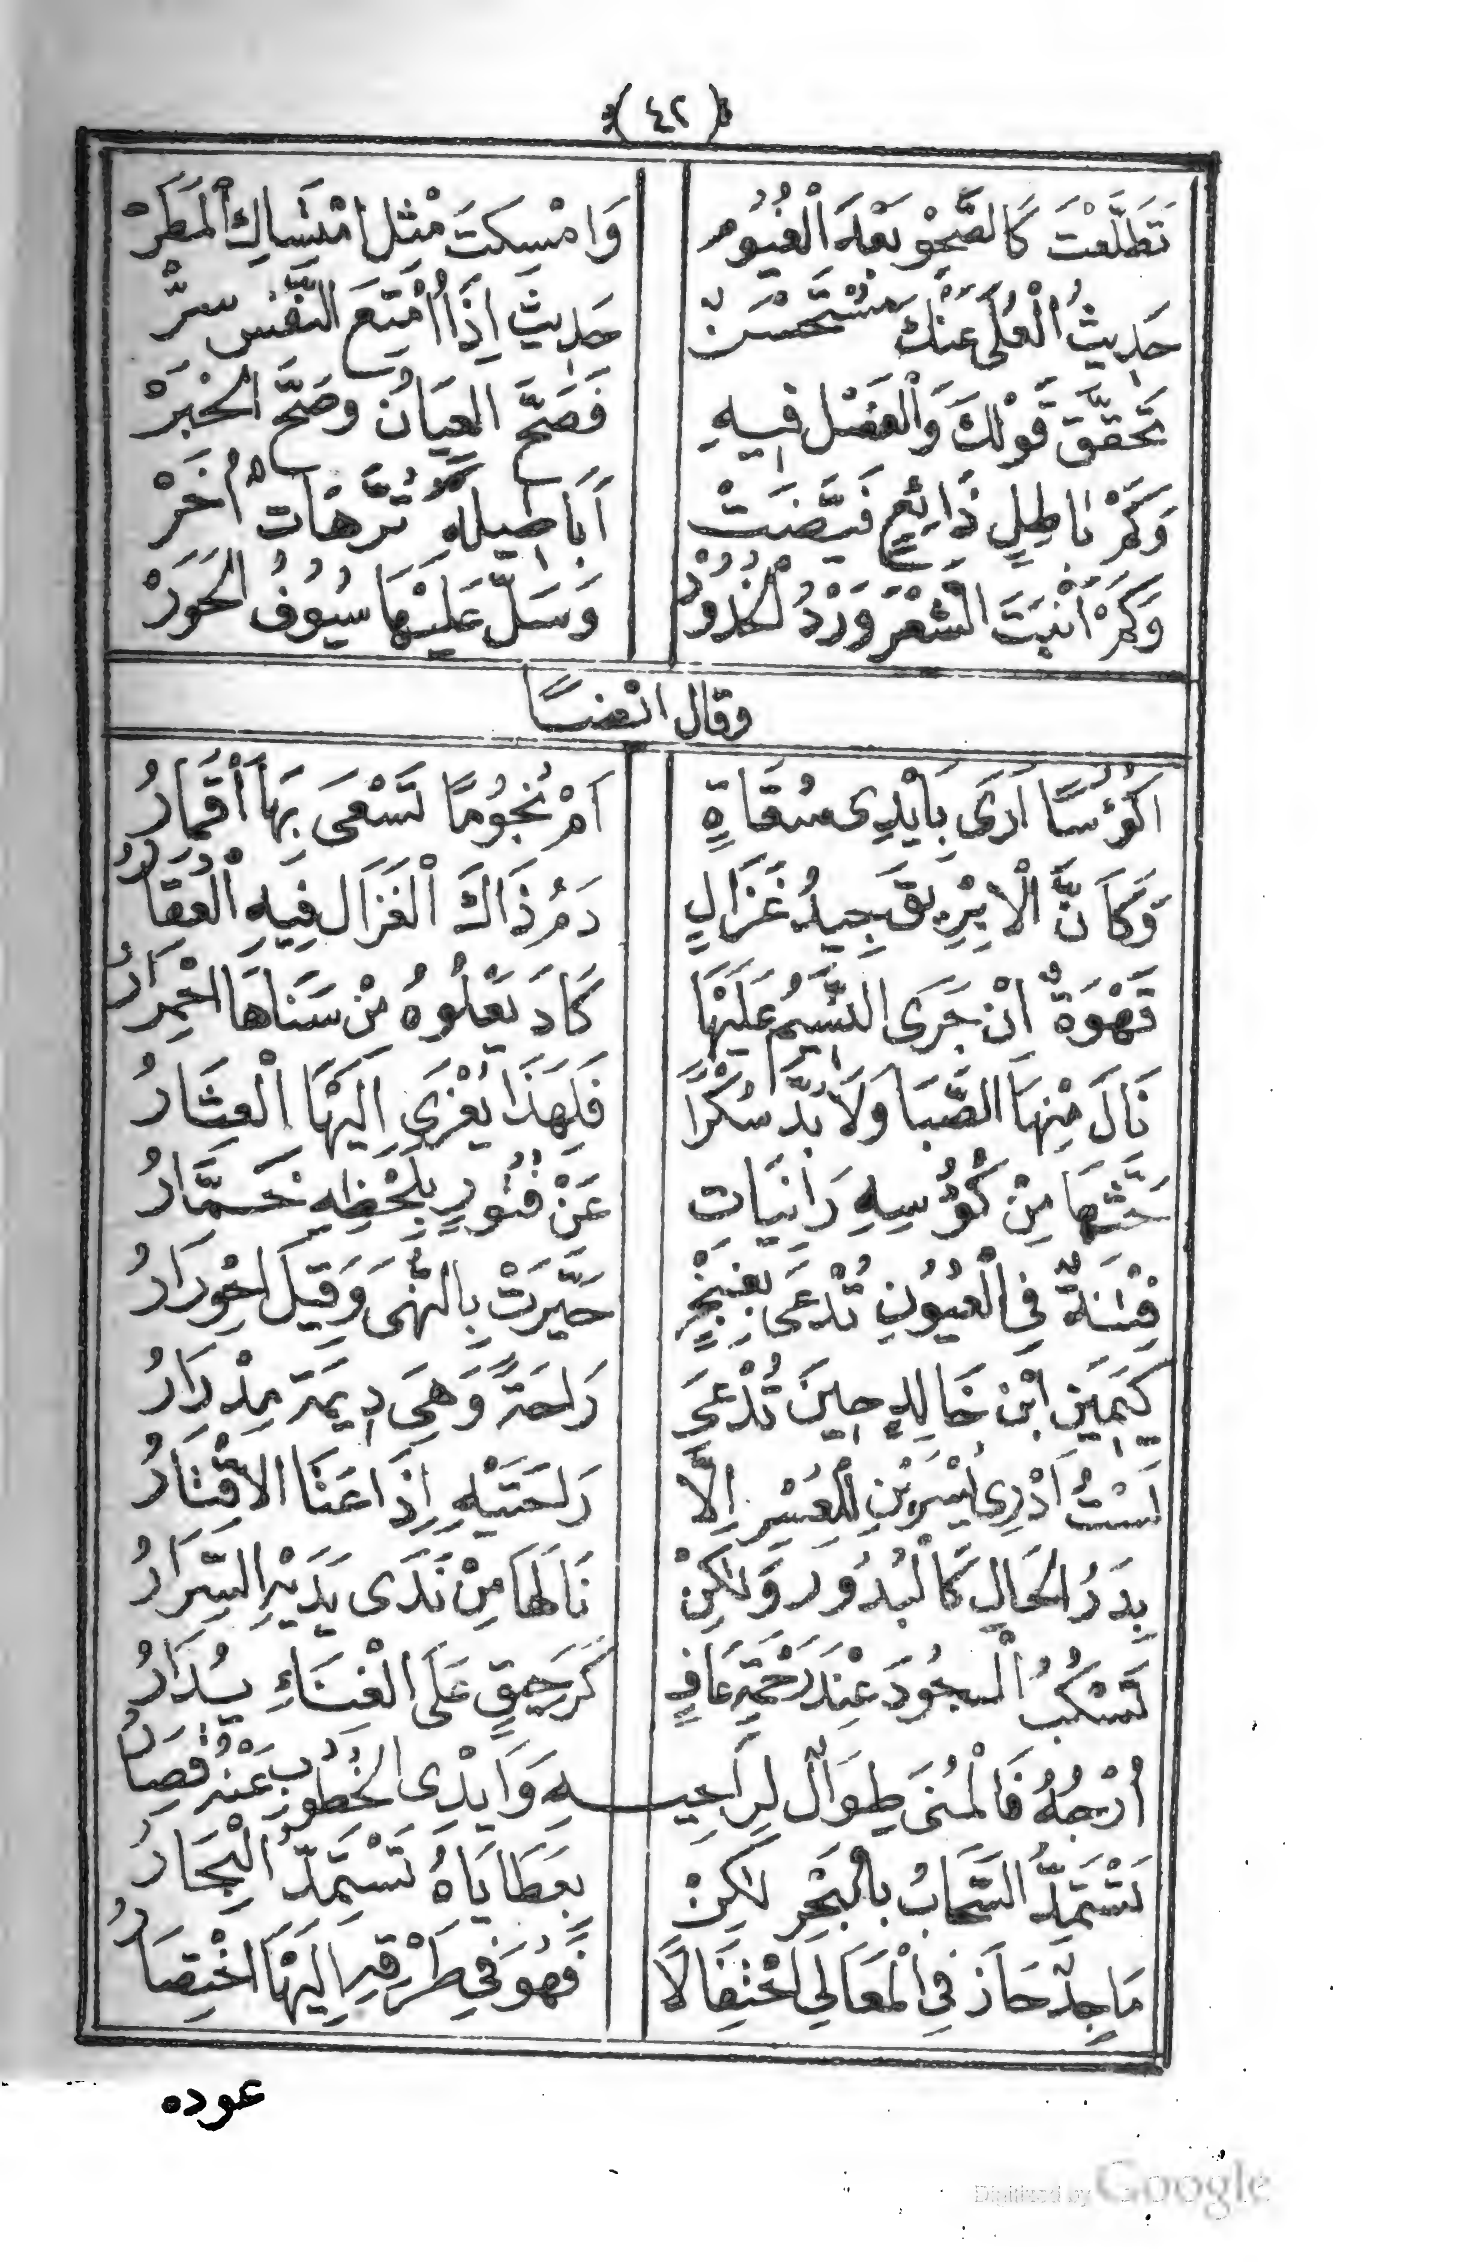 (٤٢)
تَطَلَّعْتَ كَالصَّحْوِ بَعْدَ الْغُيُومِ وَامْسَكتَ مِثْل امْتِسَاكِ الْمَطَرْ
حَدِيثُ الْعُلَى عَنْكَ مُسْتَحْسَنٌ حَدِيث اِذَا اُمْتِعَ النَّفْس سرَّ
تَحَقَّقَ قَوْلكَ وَالْفَضْل فِيهِ فَصَحَّ العِيَانُ وصَحَّ الخَبَرْ
وَكَمْ بَاطِلٍ ذَائِعٍ قَيَّضَتْ اَبَاطِيلهُ تُرَّهَات اُخَرْ
وَكَمْ اَنْبَتَ الشَّعْرَ وَرْدُ الْخُدُوْدِ وَسَلَّ عَلَيْهَا سُيُوفُ الحَوَرْ
وقال ايْضًا
اَكْؤُسًا اَرَى بَاَيْدِى سُقَاةٍ اَمْ نُجُومًا تَسْعَى بِهَا اَقْمَارُ
وَكَاَنَّ الْاِبْرِيقَ جِيدُ غَزَالٍ دَمُ ذَاكَ الْغَزَالِ فِيهِ الْعُقَارُ
قَهْوَةٌ انْ جَرَى النَّسِيمُ عَلَيْهَا كَادَ يَعْلُوهُ مْن سَنَاهَا اخْمِرَارُ
نَالَ مِنْهَا الصَّبَا وَلَا بُدَّ سُكْرًا فَلِهَذَا يُعْزَى اِلَيْهَا الْعِثَارُ
حَثَّهَا مِنْ كُؤُسِهِ رَانِيَات عَنْ فُتُورٍ بِلَحْظِهِ خَمَّارُ
فِتْنَةٌ فِى الْعُيُونِ تُدْعَى بِغَنْجٍ حَيَّرَتْ بِالنُّهَى وَقِيلَ احْوِرَارُ
كَيَمِينِ ابْن خَالِدٍ حِينَ تُدْعَى رَاحَةً وَهِىَ دِيمَة مِدْرَارُ
لَسْتُ اَدْرِى اُيْسْرَيْنِ لِلْعُسْرِ اِلَّا رَاحَتَيْهِ اِذَا عَنَا الاقْتَارُ
بِدَرُ الحَالِ كَالْبُدُورِ وَلَكِنْ نَالَهَا مِنْ نَدَى يَدَيْهِ السِّرَارُ
تَسْكُبُ الْجُودَ عِنْدَ رَحْمَةِ عَافٍ كَرَحِيقٍ عَلَى الْغِنَاءِ يُدَارُ
اُرْجُهُ فَالْمُنَى طِوَالٌ لِرَاجِيـــهِ وَاَيْدِى الخُطُوبِ عَنْهُ قِصَارُ
تَسْتَمِدُّ السَّحَابُ بِالْبَحْرِ لَكِنْ بِعَطَايَاهُ تَسْتَمِدُّ الْبِحَارُ
مَاجِدٌ حَازَ فِى الْمَعَالِى احْتِفَالًا فَهُوَ فِى طَرْقِهِ اِلَيْهَا اخْتِصَارُ
عوده
Digitized by Google